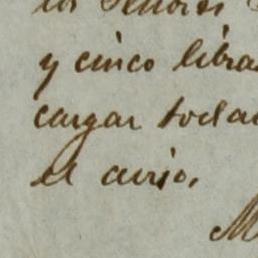 los Señores
y cinco libra
cargar toda
el aviso,
M